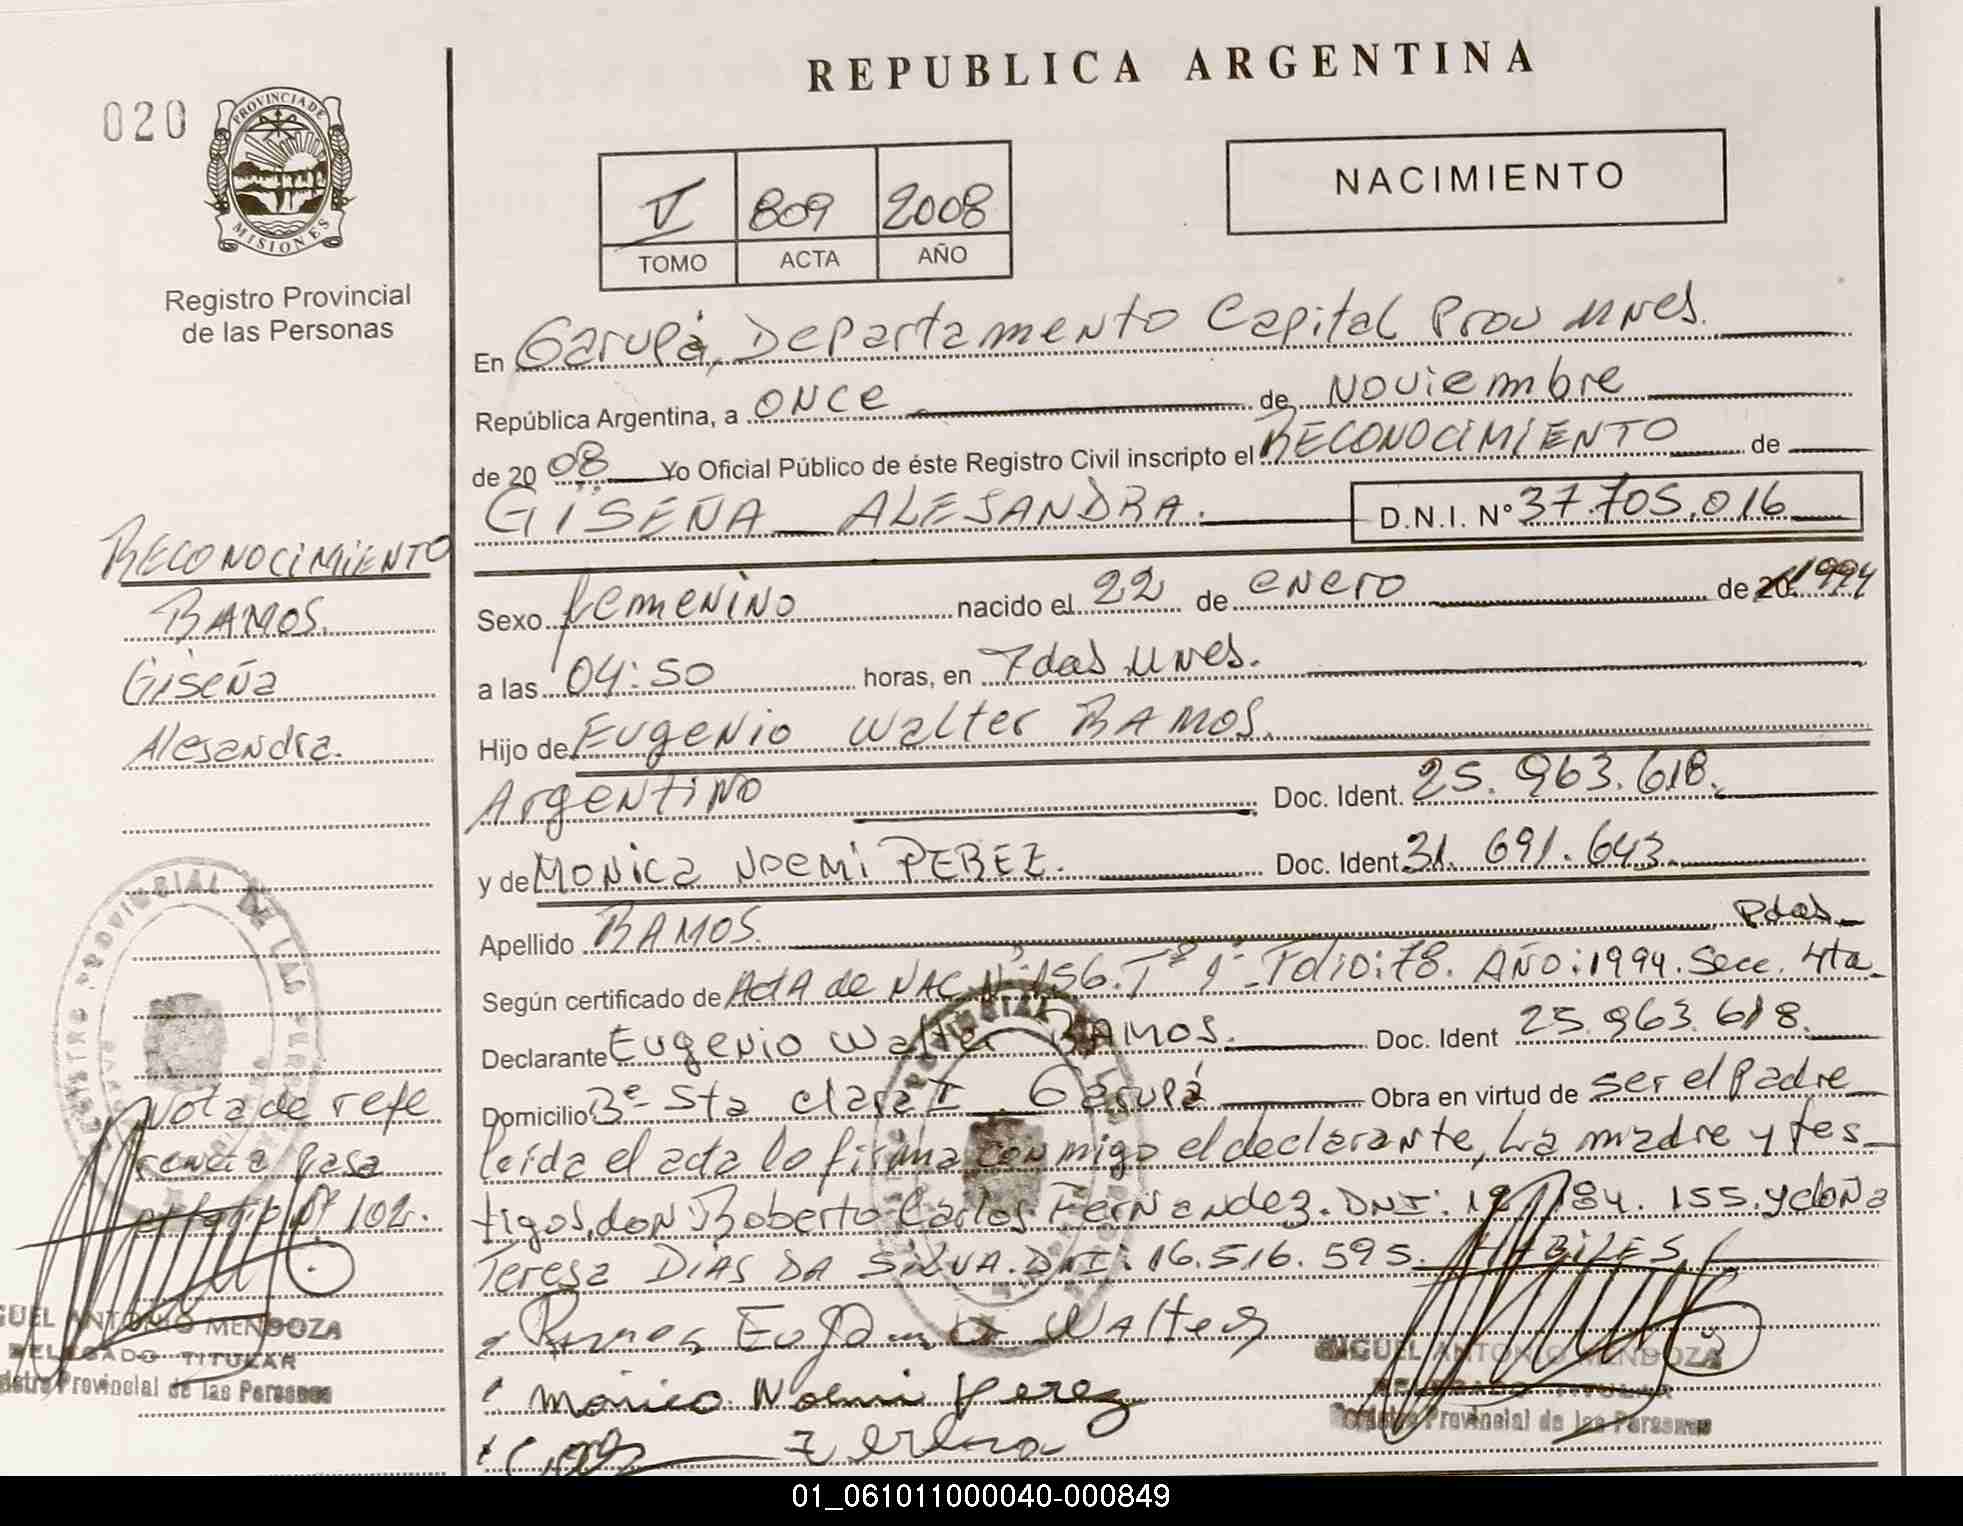 REPUBLICA ARGENTINA
020
PROVINCIA DE
MISIONES
Registro Provincial
de las Personas
NACIMIENTO
V 809 2008
TOMO ACTA AÑO
En Garupá, Departamento Capital Prov Mnes.
República Argentina, a once de noviembre
de 2008 Yo Oficial Público de éste Registro Civil inscripto el RECONOCIMIENTO de
GISEÑA ALESANDRA. D.N.I. Nº 37.705.016
RECONOCIMIENTO
RAMOS.
Giseña
Alesandra.
Sexo femenino nacido el 22 de enero de 20 1994
a las 04:50 horas, en Pdas Mnes.
Hijo de Eugenio Walter RAMOS.
Argentino Doc. Ident. 25.963.618.
y de MONica NOEMi PEREZ. Doc. Ident 31.691.643
Apellido RAMOS. Pdas
Según certificado de ActA de NAC Nº 156. Tº 1º Folio: 78. AÑO: 1994. Secc. 4ta
Declarante Eugenio Walter RAMOS. Doc. Ident 25.963.618.
Domicilio Bº Sta Clara I Garupá Obra en virtud de ser el Padre
leída el acta lo firma conmigo el declarante, La madre y tes-
tigos, don Roberto Carlos Fernandez. DNI: 184.155. y doña
Teresa DIAS DA SILVA. DNI: 16.516.595. HABILES
Nota de refe
rencia pasa
al folio Nº 102.
REGISTRO PROVINCIAL DE LAS PERSONAS
MIGUEL ANTONIO MENDOZA
DELEGADO TITULAR
Registro Provincial de las Personas
Ramos Eugenio Walter
Mónica Noemi Perez
MIGUEL ANTONIO MENDOZA
DELEGADO TITULAR
Registro Provincial de las Personas
01_061011000040-000849